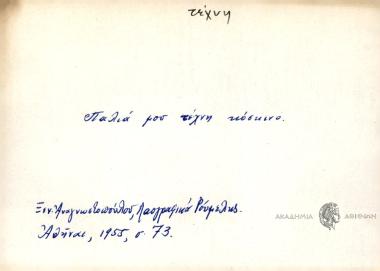 τέχνη
Παλιά μου τέχνη κόσκινο.
Ξεν. Ἀναγνωστοπούλου, Λαογραφικά Ρούμελης.
Ἀθῆναι, 1955, σ. 73.
ΑΚΑΔΗΜΙΑ ΑΘΗΝΩΝ